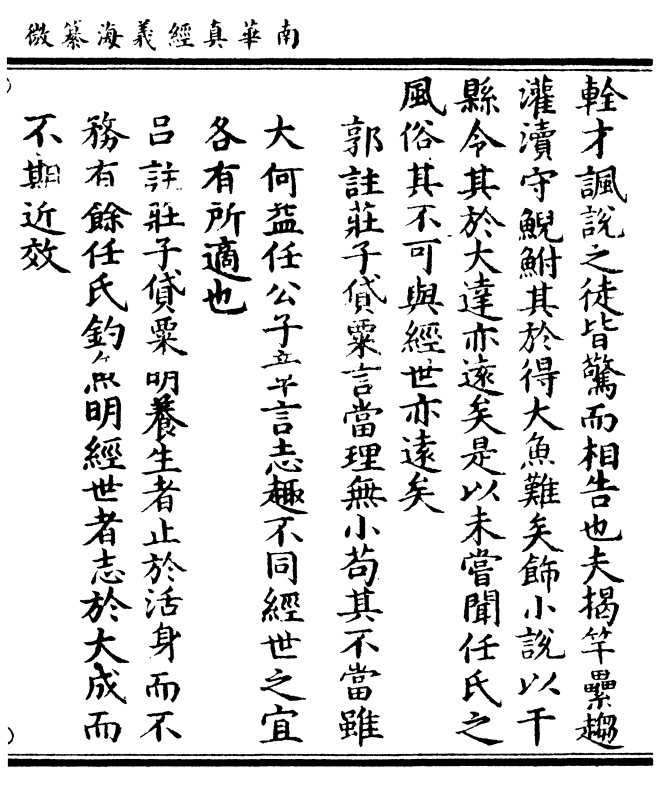 南華真經義海纂微
輇才諷說之徒皆驚而相告也夫揭竿纍趨
灌瀆守鯢鮒其於得大魚難矣飾小說以干
縣令其於大達亦遠矣是以未嘗聞任氏之
風俗其不可與經世亦遠矣
郭註莊子貸粟言當理無小苟其不當雖
大何益任公子章言志趣不同經世之宜
各有所適也
呂註莊子貸粟明養生者止於活身而不
務有餘任氏釣魚明經世者志於大成而
不期近效